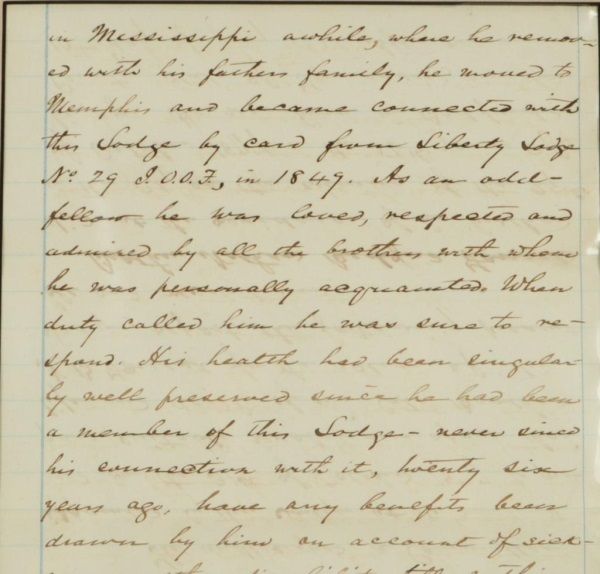 in Mississippi awhile, where he remov-
ed with his fathers family, he moved to
Memphis and became connected with
this Lodge by card from Liberty Lodge
No. 29 I.O.O.F., in 1849. As an odd-
fellow he was loved, respected and
admired by all the brothers with whom
he was personally acquainted. When
duty called him he was sure to re-
spond. His health had been singular-
ly well preserved since he had been
a member of this Lodge - never since
his connection with it, twenty six
years ago, have any benefits been
drawn by him on account of sick-